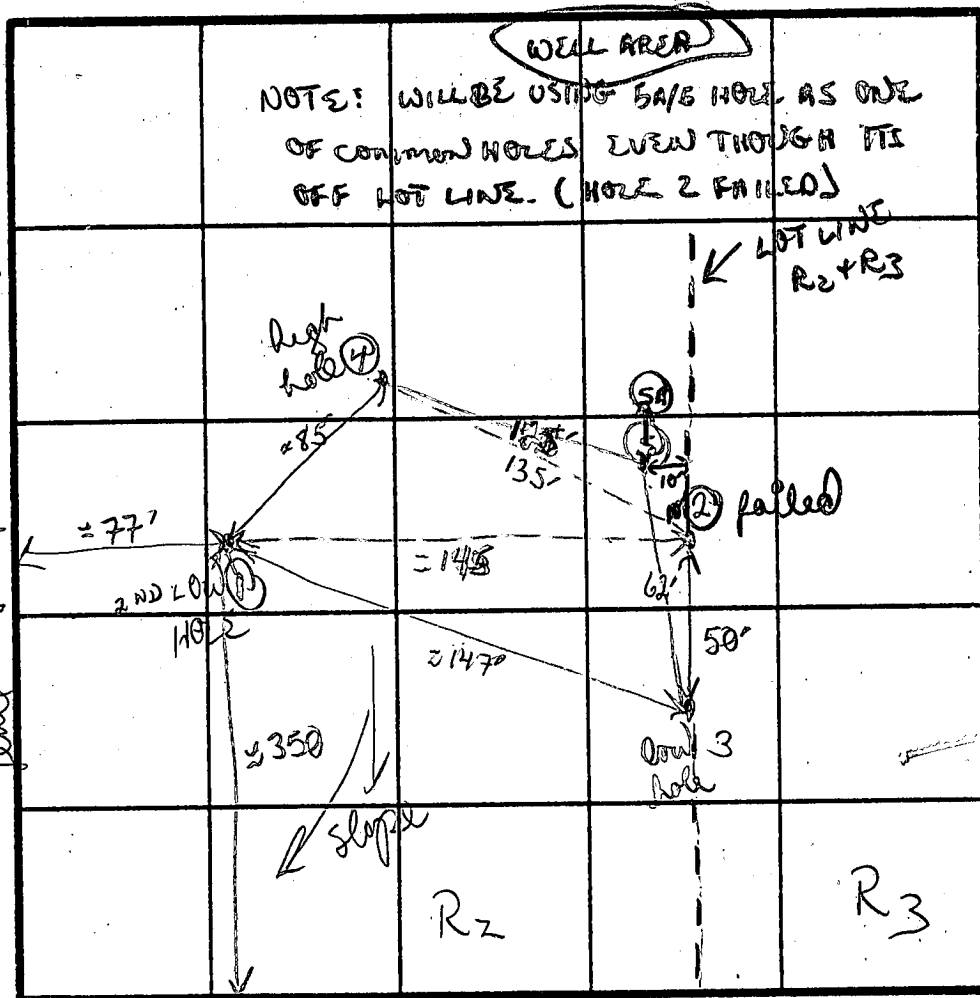 WELL AREA
NOTE: WILL BE USING 5A/5 HOLE AS ONE
OF COMMON HOLES EVEN THOUGH ITS
OFF LOT LINE. (HOLE 2 FAILED)
LOT LINE
R2 + R3
high
hole 4
5A
5
≈85
135'
10'
2 failed
≈77'
≈145
2ND LOW 1
HOLE
62'
50'
≈147'
≈350
low 3
hole
slope
R2
R3